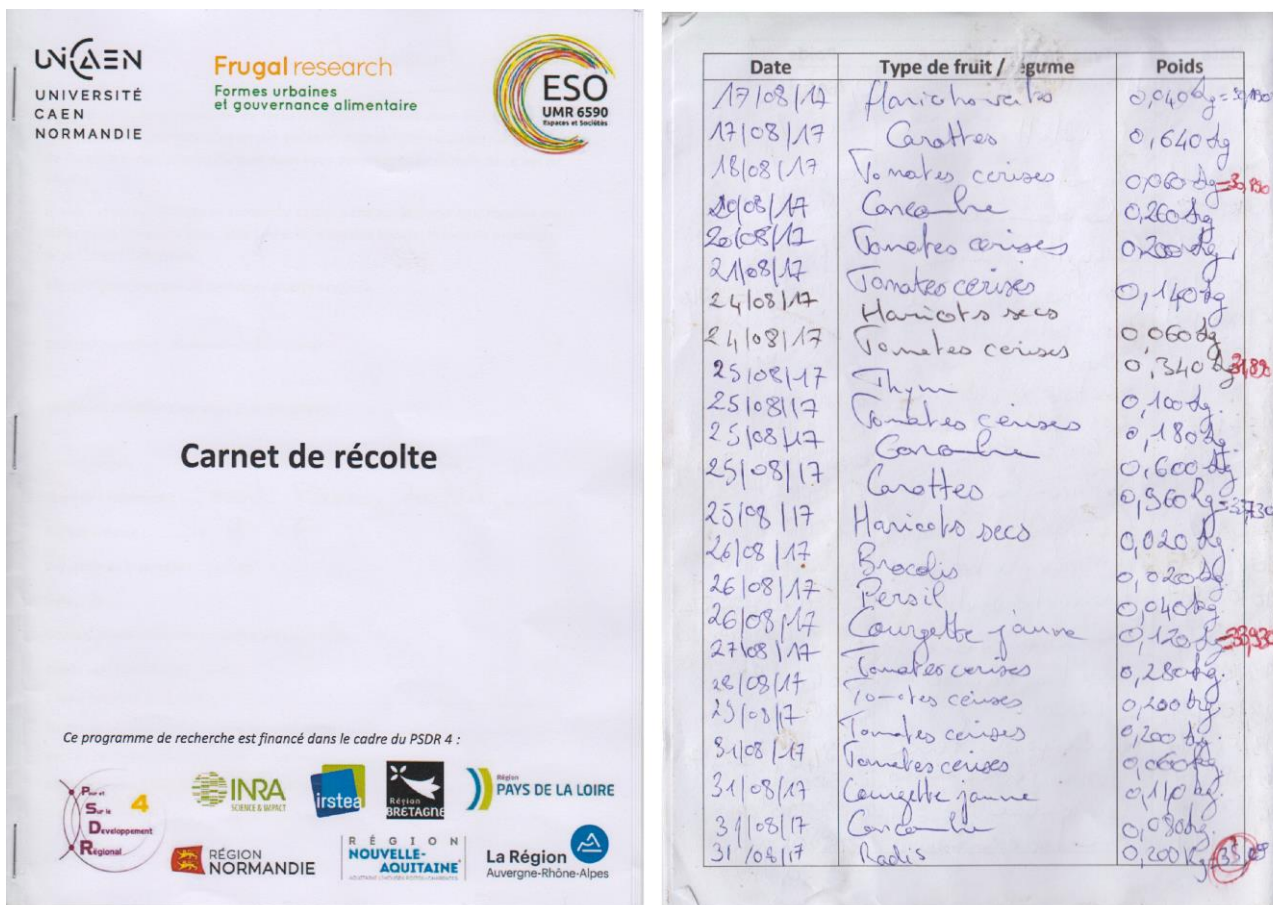 UNICAEN
UNIVERSITÉ
CAEN
NORMANDIE
Frugal research
Formes urbaines
et gouvernance alimentaire
ESO
UMR 6590
Espaces et Sociétés
Carnet de récolte
Ce programme de recherche est financé dans le cadre du PSDR 4 :
Pour et
Sur le 4
Développement
Régional
INRA
SCIENCE & IMPACT
irstea
Région
BRETAGNE
Région
PAYS DE LA LOIRE
RÉGION
NORMANDIE
RÉGION
NOUVELLE-
AQUITAINE
La Région
Auvergne-Rhône-Alpes
Date Type de fruit / égume Poids
17/08/17 0,040kg
17/08/17 Carottes 0,640kg
18/08/17 Tomates cerises 0,060kg
20/08/17 Concombre 0,260kg
20/08/17 Tomates cerises 0,200kg
21/08/17 Tomates cerises 0,140kg
24/08/17 Haricots secs 0,060kg
24/08/17 Tomates cerises 0,340kg
25/08/17 Thym 0,100kg
25/08/17 Tomates cerises 0,180kg
25/08/17 Concombre 0,600kg
25/08/17 Carottes 0,960kg
25/08/17 Haricots secs 0,020kg
26/08/17 Brocolis 0,020kg
26/08/17 Persil 0,040kg
26/08/17 Courgette jaune 0,120kg =33,930
27/08/17 Tomates cerises 0,280kg
28/08/17 Tomates cerises 0,200kg
29/08/17 Tomates cerises 0,200kg
31/08/17 Tomates cerises 0,060kg
31/08/17 Courgette jaune 0,110kg
31/08/17 Concombre 0,080kg
31/08/17 Radis 0,200kg